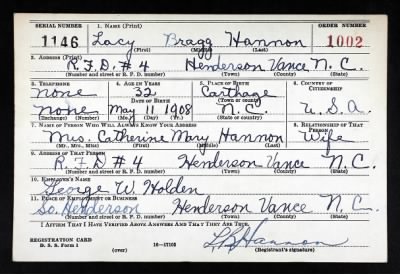 SERIAL NUMBER 1. NAME (Print) ORDER NUMBER
1146 Lacy Bragg Hannon 1002
(First) (Middle) (Last)
2. ADDRESS (Print)
R.F.D. #4 Henderson Vance N.C.
(Number and street or R. F. D. number) (Town) (County) (State)
3. TELEPHONE 4. AGE IN YEARS 5. PLACE OF BIRTH 6. COUNTRY OF CITIZENSHIP
none 32 Carthage
DATE OF BIRTH (Town or county)
none May 11 1908 N.C. U.S.A.
(Exchange) (Number) (Mo.) (Day) (Yr.) (State or country)
7. NAME OF PERSON WHO WILL ALWAYS KNOW YOUR ADDRESS 8. RELATIONSHIP OF THAT PERSON
Mrs. Catherine Mary Hannon Wife
(Mr., Mrs., Miss) (First) (Middle) (Last)
9. ADDRESS OF THAT PERSON
R.F.D #4 Henderson Vance N.C.
(Number and street or R. F. D. number) (Town) (County) (State)
10. EMPLOYER'S NAME
George W. Holden
11. PLACE OF EMPLOYMENT OR BUSINESS
So. Henderson Henderson Vance N.C.
(Number and street or R. F. D. number) (Town) (County) (State)
I AFFIRM THAT I HAVE VERIFIED ABOVE ANSWERS AND THAT THEY ARE TRUE.
REGISTRATION CARD
D. S. S. Form 1 (over) 16-17105
L B Hannon
(Registrant's signature)